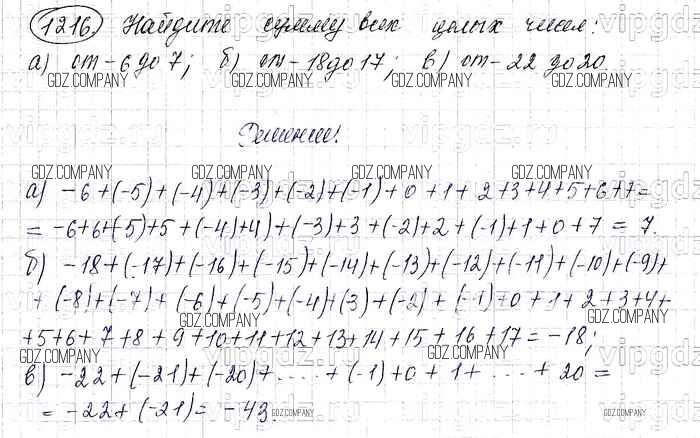 1216. Найдите сумму всех целых чисел:
а) от -6 до 7; б) от -18 до 17; в) от -22 до 20.
GDZ.COMPANY GDZ.COMPANY GDZ.COMPANY GDZ.COMPANY
Решение:
GDZ.COMPANY GDZ.COMPANY GDZ.COMPANY GDZ.COMPANY
а) -6+(-5)+(-4)+(-3)+(-2)+(-1)+0+1+2+3+4+5+6+7=
= -6+6+(-5)+5+(-4)+4)+(-3)+3+(-2)+2+(-1)+1+0+7=7.
GDZ.COMPANY GDZ.COMPANY GDZ.COMPANY GDZ.COMPANY
б) -18+(-17)+(-16)+(-15)+(-14)+(-13)+(-12)+(-11)+(-10)+(-9)+
+(-8)+(-7)+(-6)+(-5)+(-4)+(3)+(-2)+(-1)+0+1+2+3+4+
GDZ.COMPANY GDZ.COMPANY GDZ.COMPANY GDZ.COMPANY
+5+6+7+8+9+10+11+12+13+14+15+16+17=-18;
GDZ.COMPANY GDZ.COMPANY GDZ.COMPANY GDZ.COMPANY
в) -22+(-21)+(-20)+....+(-1)+0+1+...+20=
= -22+(-21)=-43.
GDZ.COMPANY GDZ.COMPANY GDZ.COMPANY GDZ.COMPANY